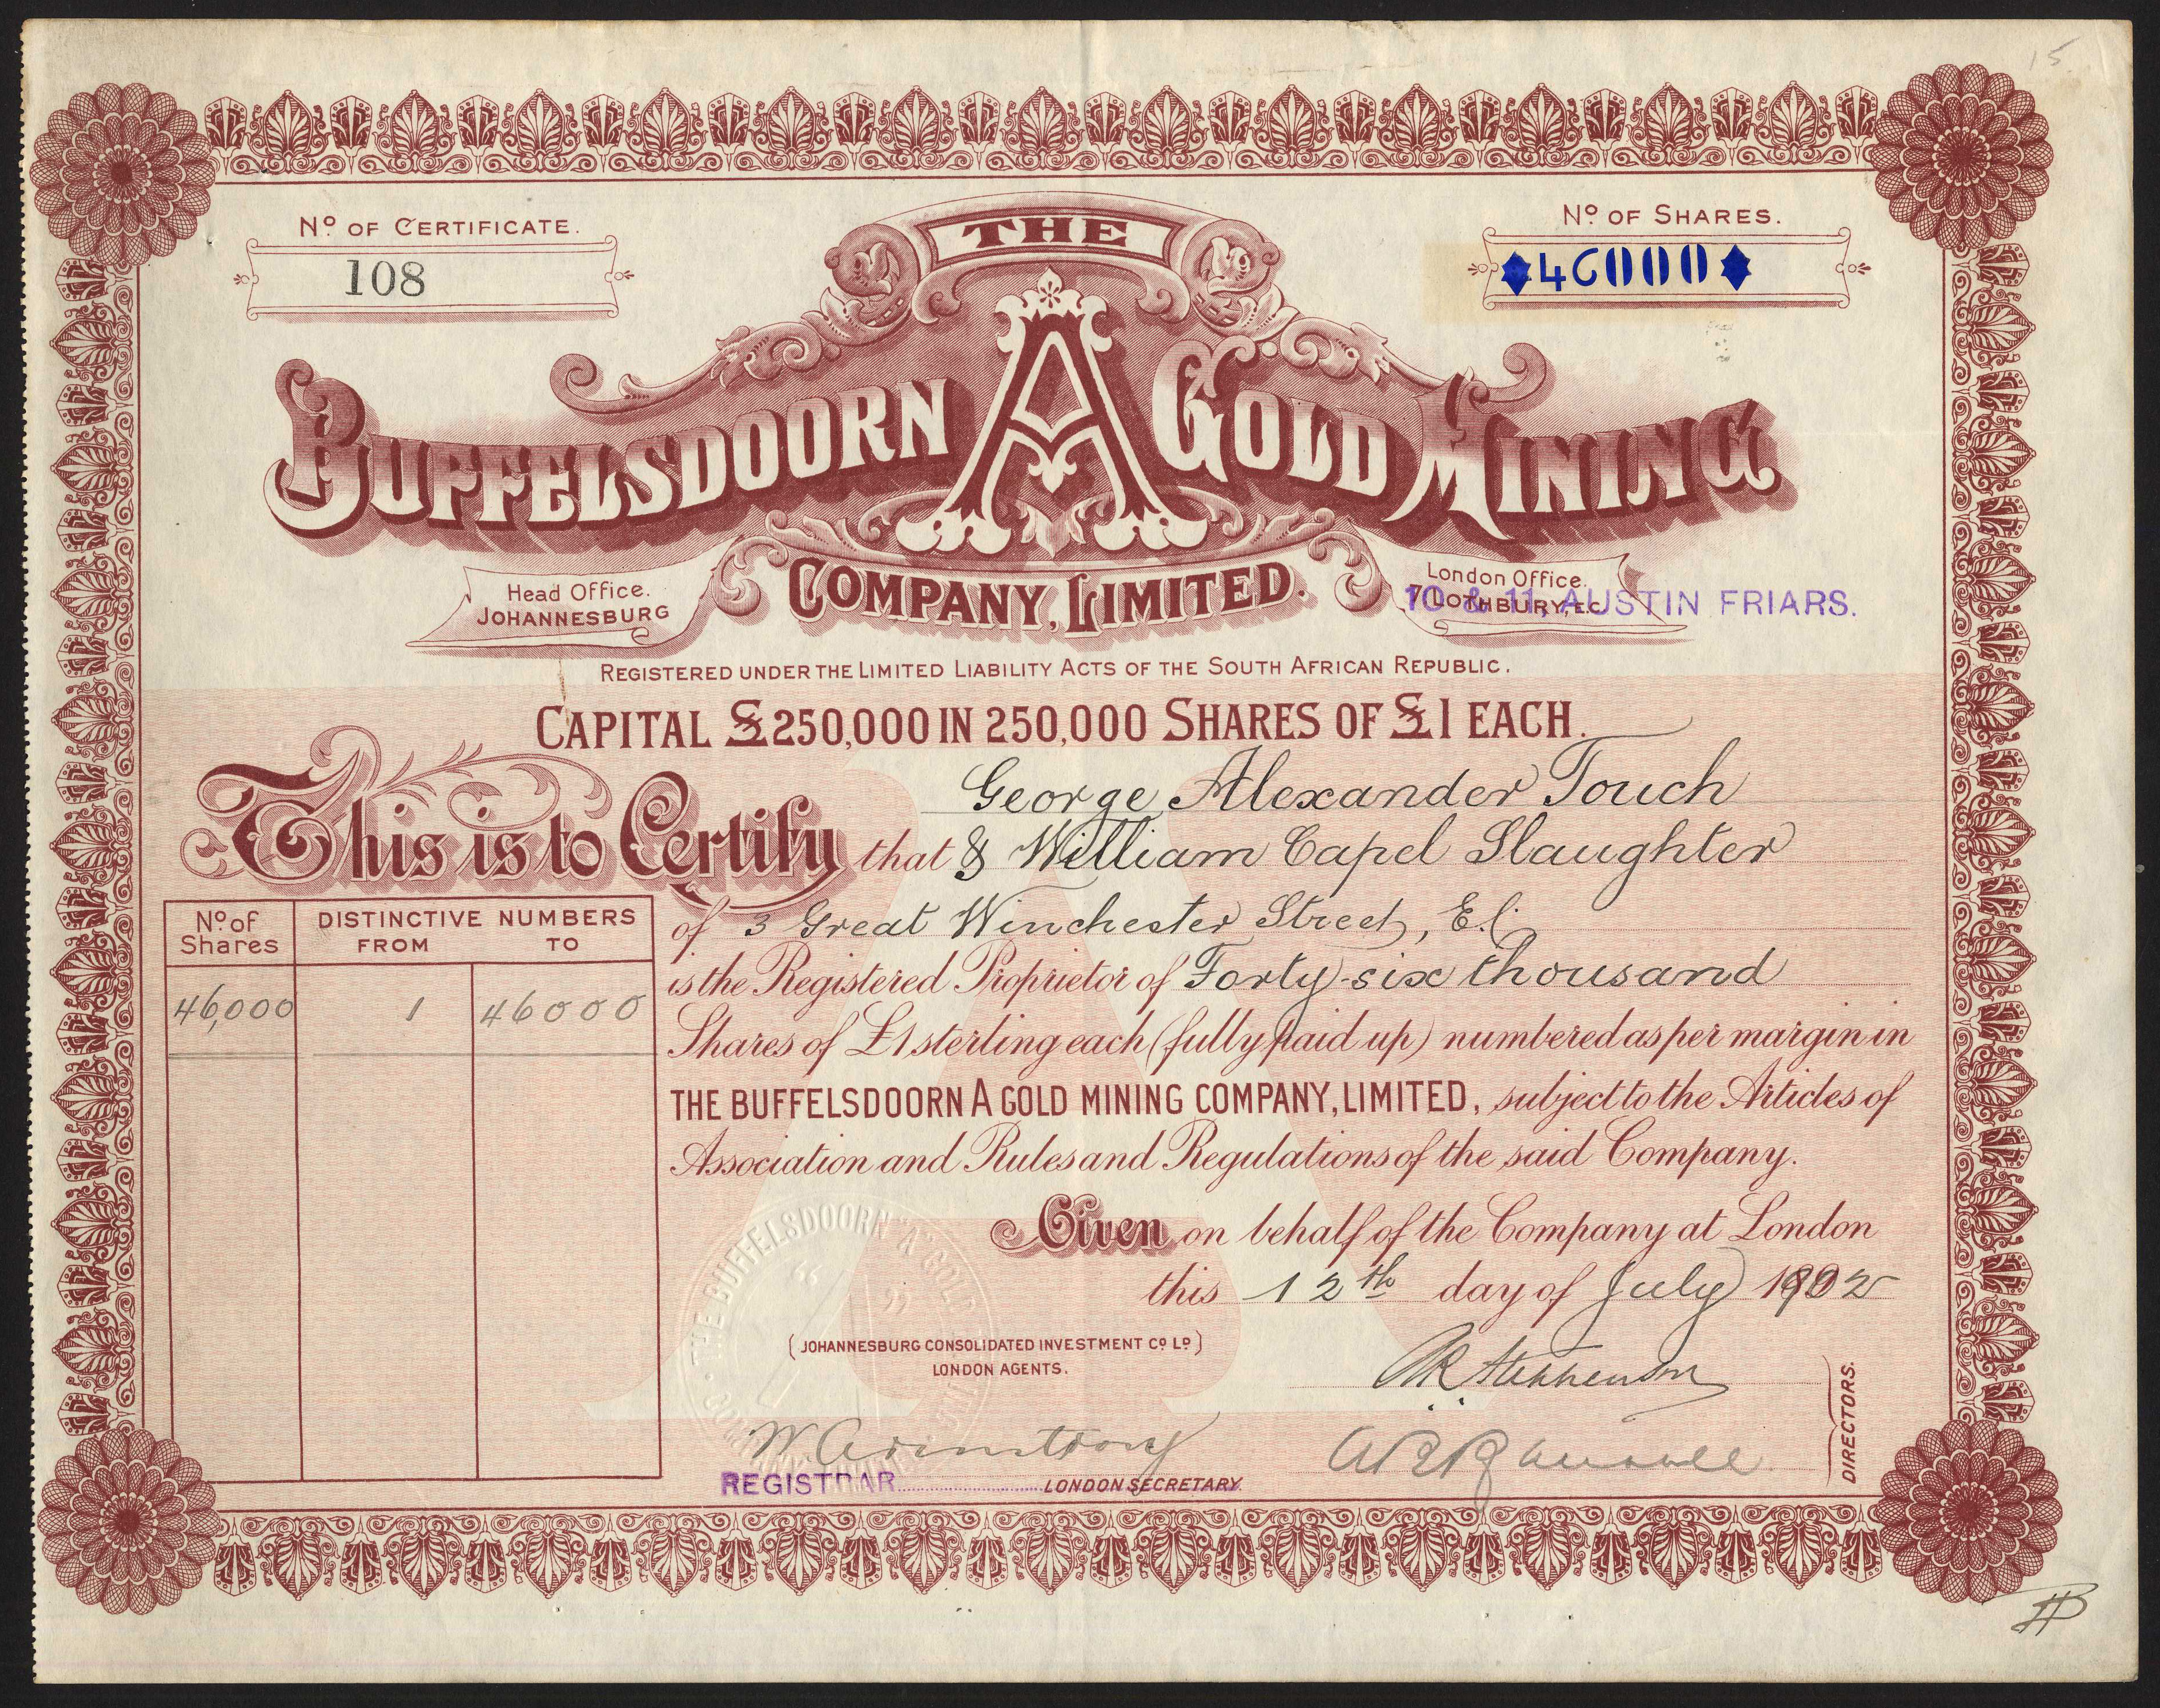 15
Nº OF CERTIFICATE.
108
Nº OF SHARES.
46000
THE
BUFFELSDOORN A GOLD MINING
COMPANY, LIMITED.
Head Office.
JOHANNESBURG
London Office.
7 LOTHBURY, E.C.
10 & 11, AUSTIN FRIARS.
REGISTERED UNDER THE LIMITED LIABILITY ACTS OF THE SOUTH AFRICAN REPUBLIC.
CAPITAL £250,000 IN 250,000 SHARES OF £1 EACH.
George Alexander Touch
This is to Certify that & William Capel Slaughter
of 3 Great Winchester Street, E.C.
is the Registered Proprietor of Forty-six thousand
Shares of £1 sterling each (fully paid up) numbered as per margin in
THE BUFFELSDOORN A GOLD MINING COMPANY, LIMITED, subject to the Articles of
Association and Rules and Regulations of the said Company.
Nº of Shares
DISTINCTIVE NUMBERS
FROM TO
46,000 1 46000
Given on behalf of the Company at London
this 12th day of July 1902
THE BUFFELSDOORN "A" GOLD
(JOHANNESBURG CONSOLIDATED INVESTMENT Cº Lº)
LONDON AGENTS.
W. Armstrong
REGISTRAR
LONDON SECRETARY.
Stephenson
DIRECTORS.